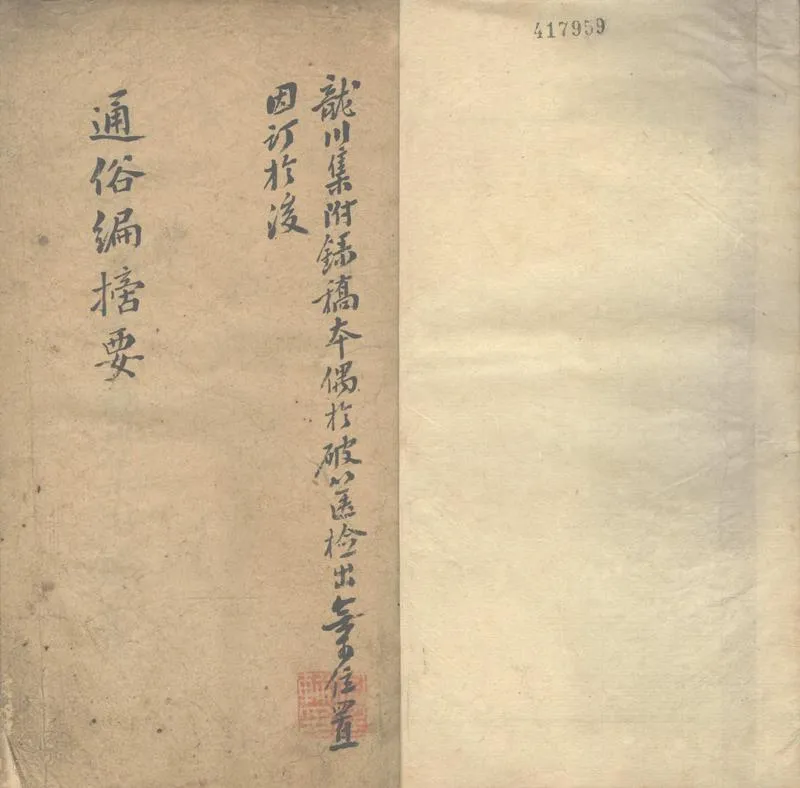 417959
龍川集附錄稿本偶於破篋檢出無位置
因訂於後
通俗編摘要